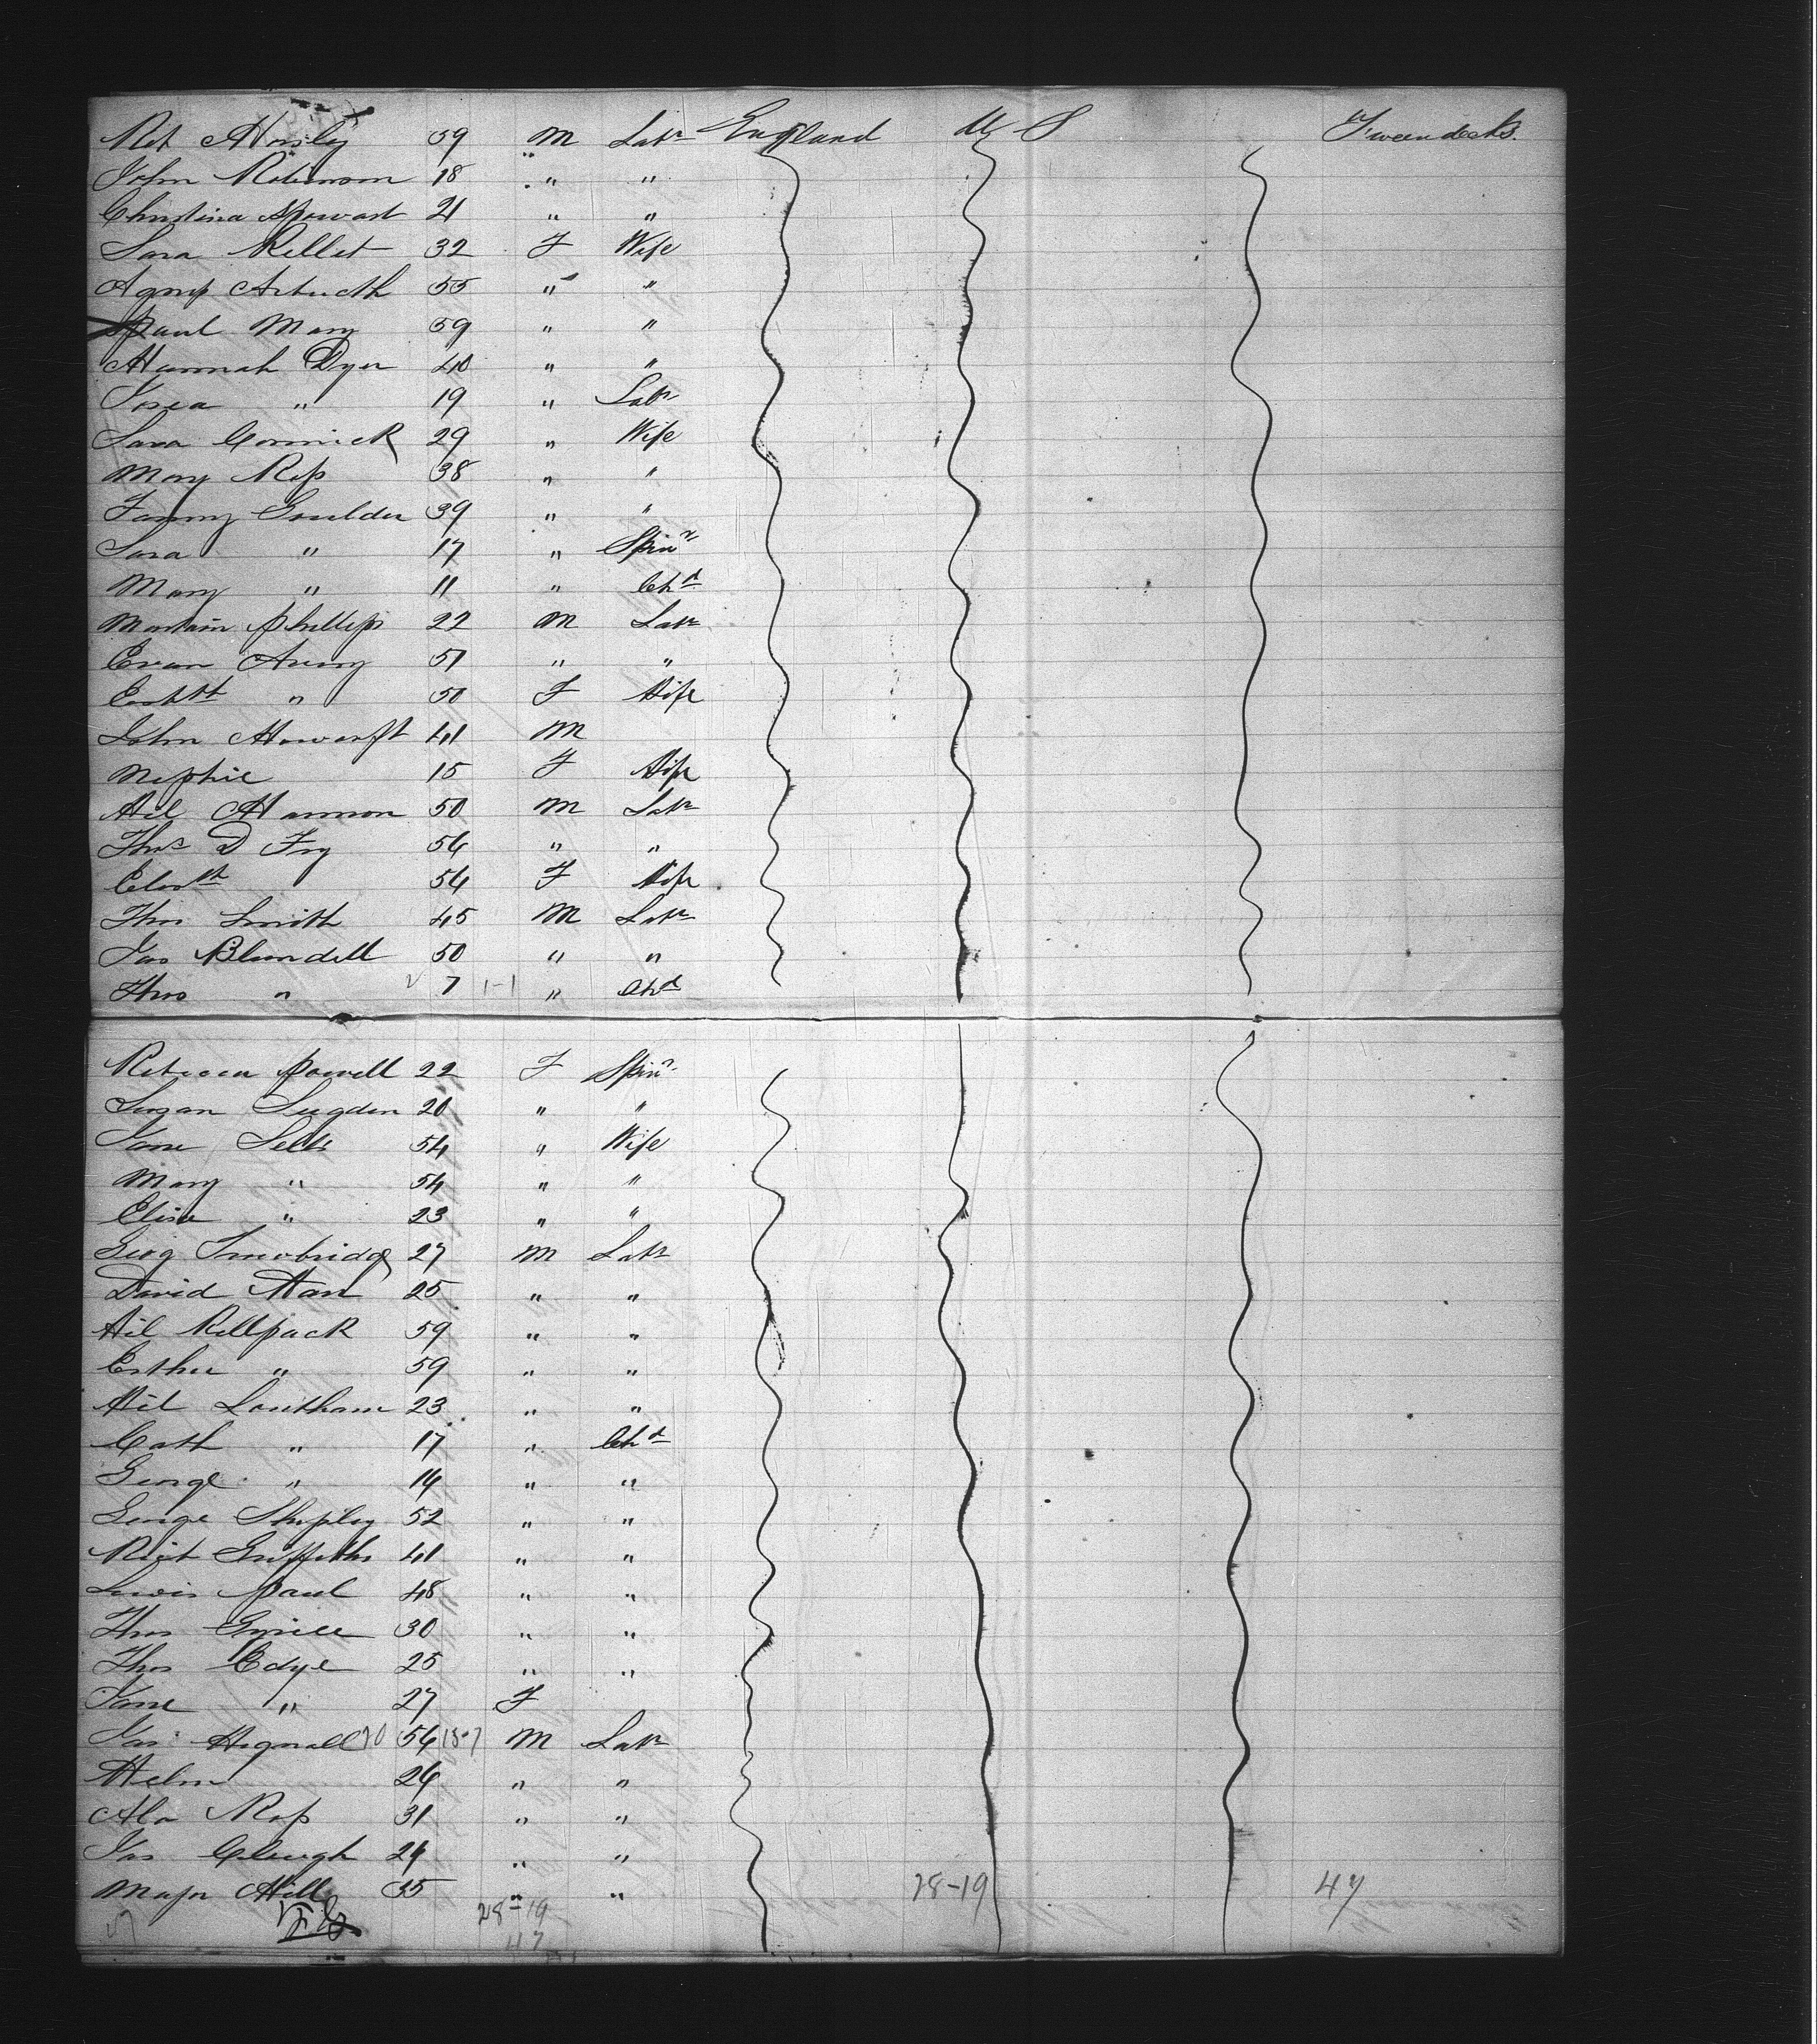 Rob Horsley 59 M Labr England U S Tweendecks.
John Robinson 18 " "
Christina Spowart 21 " "
Sara Kellet 32 F Wife
55 " "
Paul Mary 59 " "
Hannah Dyer 40 " "
" 19 " Labr
Sara Cormick 29 " Wife
Mary Ross 38 " "
Fanny Goulder 39 " "
Sara " 17 " Spinr
Mary " 11 " Chd
Phillips 22 M Labr
Evan 51 " "
" 50 F Wife
John 41 M
15 F Wife
Wil Hammon 50 M Labr
Thos D Fry 54 " "
54 F Wife
Thos Smith 45 M Labr
Jas Blundell 50 " "
Thos " 7 1-1 " Chd
Rebecca Powell 22 F Spinr
Susan Sugden 20 " "
Jane 54 " Wife
Mary " 54 " "
Eliza " 23 " "
Geog Trowbridge 27 M Labr
David 25 " "
Wil Killpack 59 " "
Esther " 59 " "
Wil 23 " "
Cath " 17 " Chd
George " 14 " "
George Shipley 52 " "
Griffiths 41 " "
Lewis Paul 48 " "
Thos 30 " "
Thos Edye 25 " "
Jane " 27 F
Jas Hignall 20 54 18-7 M Labr
24 " "
Ross 31 " "
Jas Clough 24 " "
Major Hill 35 " " 28-19 47
28-19
47